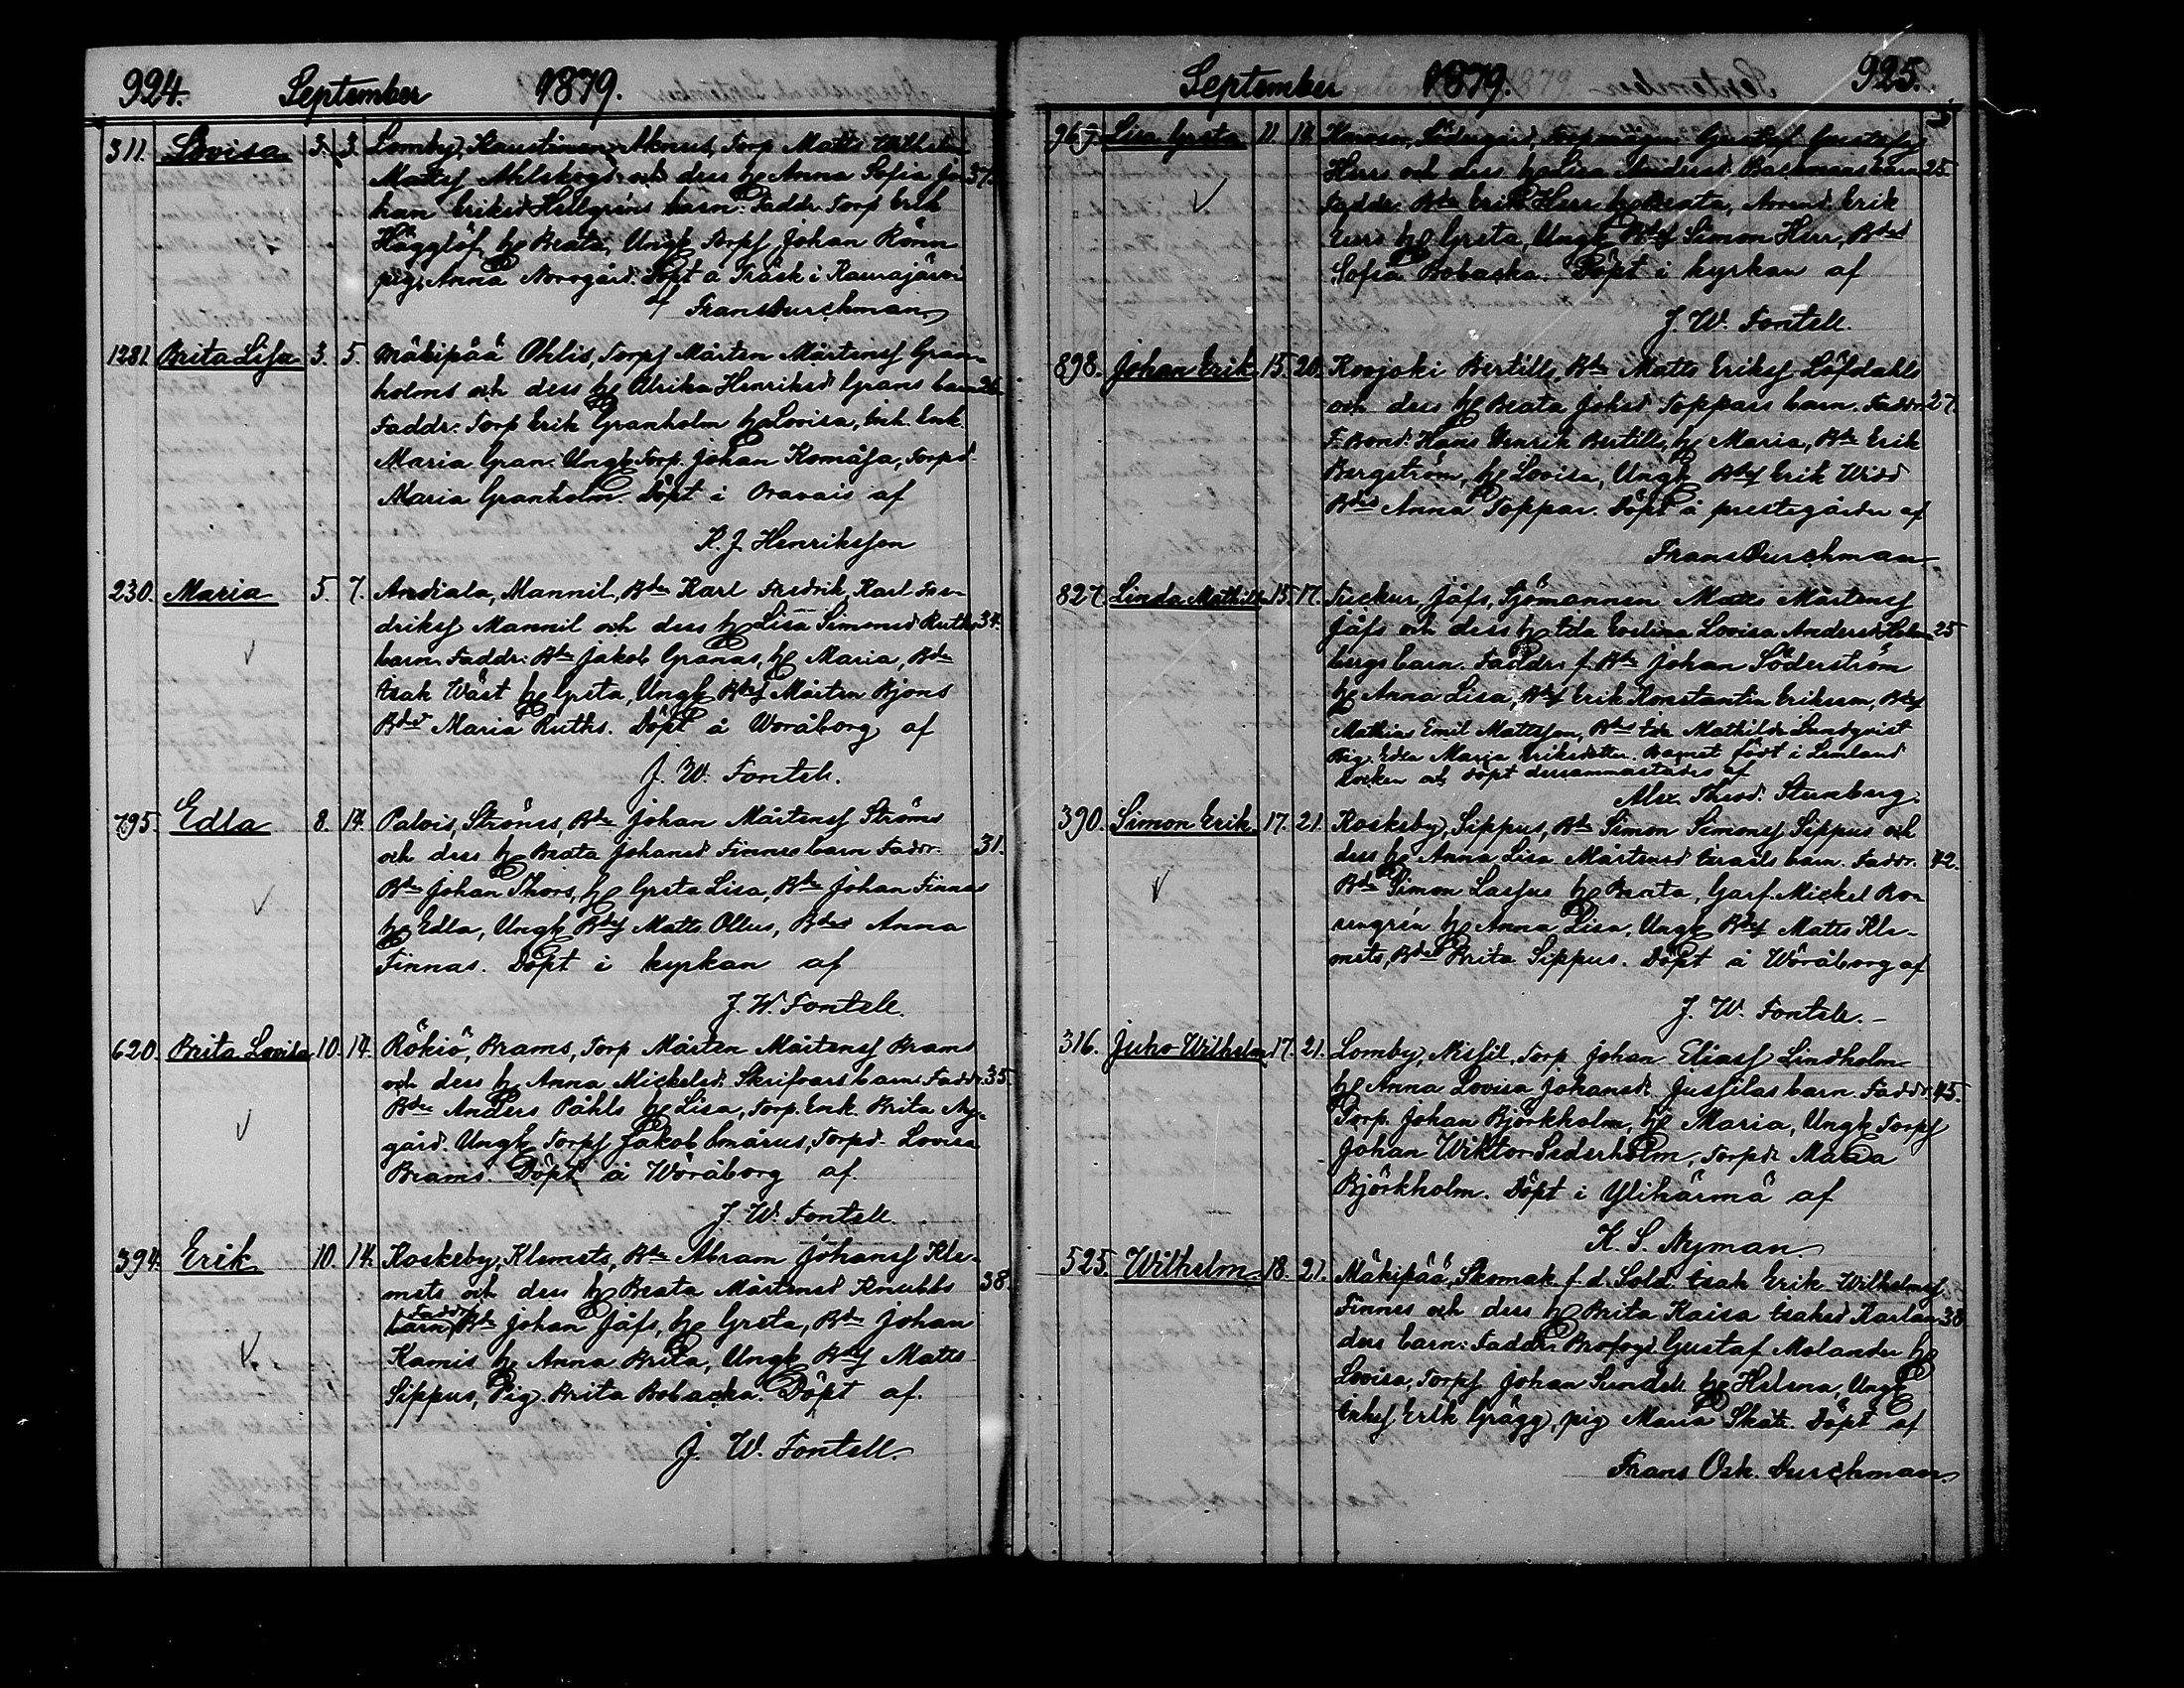 924. September 1879.
311. Lovisa 3. 3. Lomby, Kaustinen Torp Matts
Mattsf Ahlskogs och dess h. Anna Sofia Jo- 37.
han Eriksd Hellgréns barn: Faddr. Torp Erik
Hägglöf, h. Beata, Ungk Torpf Johan Rönn
pig. Anna Norrgård. Döpt å Träsk i Kaurajärvi
af Frans Durchman
1281. Brita Lisa 3. 5. Mäkipää Ohlis, Torpf Mårten Mårtensf Gran-
holms och dess h. Ulrika Henriksd Grans barn 26.
Faddr: Torp Erik Granholm h. Lovisa, Enk.
Maria Gran. Ungk Torp. Johan Komåsa, Torpd
Maria Granholm. Döpt i Oravais af
K. J. Henriksson
230. Maria 5. 7. Andiala, Mannil, Bdn Karl Fredrik, Karl Fre-
driksf Mannil och dess h. Lisa Simonsd Ruths 34.
barn. Faddr: Bdn Jakob Granas, h. Maria, Bdn
Isak Wäst h. Greta, Ungk Bdsf Mårten Bjons
Bdsd Maria Ruths. Döpt å Woråborg af
J. W. Fontell.
795. Edla 8. 14. Palvis, Ströms, Bdn Johan Mårtensf Ströms
och dess h. Beata Johansd Finnes barn Faddr. 31.
Bdn Johan Thors, h. Greta Lisa, Bdn Johan Finnas
h. Edla, Ungk Bdsf Matts Ollus, Bdsd Anna
Finnas. Döpt i kyrkan af
J. W. Fontell.
620. Brita Lovisa 10. 14. Rökiö, Brams, Torp Mårten Mårtensf Brams
och dess h. Anna Mickelsd. Skrifvars barn Faddr. 35.
Bdn Anders Påhls h. Lisa, Torp. Enk. Brita Ny-
gård. Ungk Torpf Jakob Smårus, Torpd. Lovisa
Brams. Döpt å Wöråborg af.
J. W. Fontell.
394. Erik 10. 14. Koskeby, Klemets, Bdn Abram Johansf Kle-
mets och dess h. Beata Mårtensd Knubbs 38.
barn, Faddr Bdn Johan Jåfs, h. Greta, Bdn Johan
Kamis h. Anna Brita, Ungk Bdsf Matts
Sippus, Pig. Brita Bobacka. Döpt af.
J. W. Fontell.
September 1879. 925.
967. Lisa Greta 11. 14. Södergård, Gustaf Gustafsf
Herrs och dess h. Lisa Andersd. Backmans barn 25.
Faddr: Bdn Erik Herr h. Beata, Arrend. Erik
h. Greta, Ungk Bdsf Simon Herr, Bdsd
Sofia Bobacka. Döpt i kyrkan af
J. W. Fontell.
898. Johan Erik 15. 20. Kovjoki Bertills, Bdn Matts Eriksf Löfdahls
och dess h. Beata Johsd Toppars barn. Faddr 27.
F. Bond. Hans Henrik Bertills, h. Maria, Bdn Erik
Bergström, h. Lovisa, Ungk Bdsf Erik Widd
Bdsd Anna Toppar. Döpt å prestegården af
Frans Durchman
827. Linda Mathilda 15. 17. Tuckur, Jåfs, Sjömannen Matts Mårtensf
Jåfs och dess h. Ida Evelina Lovisa Andersd Holm- 25
bergs barn. Faddr: f. Bdn Johan Söderström
h. Anna Lisa, Bdsf Erik Konstantin Eriksson, Bdsf
Mathias Emil Mattsson, Bdsd Ida Mathilda Lundqvist
Pig. Edla Maria Eriksdotter. Barnet född i Lemland
socken och döpt dersammastädes af
Alex. Theod. Stenberg.
390. Simon Erik 17. 21. Koskeby, Sippus, Bdn Simon Simonsf Sippus och
dess h. Anna Lisa Mårtensd Israels barn. Faddr. 42.
Bdn Simon Lassus h. Beata, Garf. Mickel Ro-
sengrén h. Anna Lisa, Ungk Bdsf Matts Kle-
mets, Bdsd Brita Sippus. Döpt å Wöråborg af
J. W. Fontell.
316. Juho Wilhelm 17. 21. Lomby, Nissil, Torp Johan Eliasf Lindholm
h. Anna Lovisa Johansd. Jussilas barn. Faddr. 45.
Torp. Johan Björkholm, h. Maria, Ungk Torpf
Johan Wiktor Sederholm, Torpd. Maria
Björkholm. Döpt i Ylihärmä af
K. S. Nyman
525. Wilhelm. 18. 21. Mäkipää, Skomak. f. d. Sold. Isak Erik Wilhelmsf
Finnes och dess h. Brita Kaisa Isaksd Karlan- 38
ders barn: Faddr. Brofogd. Gustaf Molander h.
Lovisa, Torpf Johan Sundell h. Helena, Ungk
Inhsf Erik Grägg, pig Maria Skäti. Döpt af
Frans Osk. Durchman